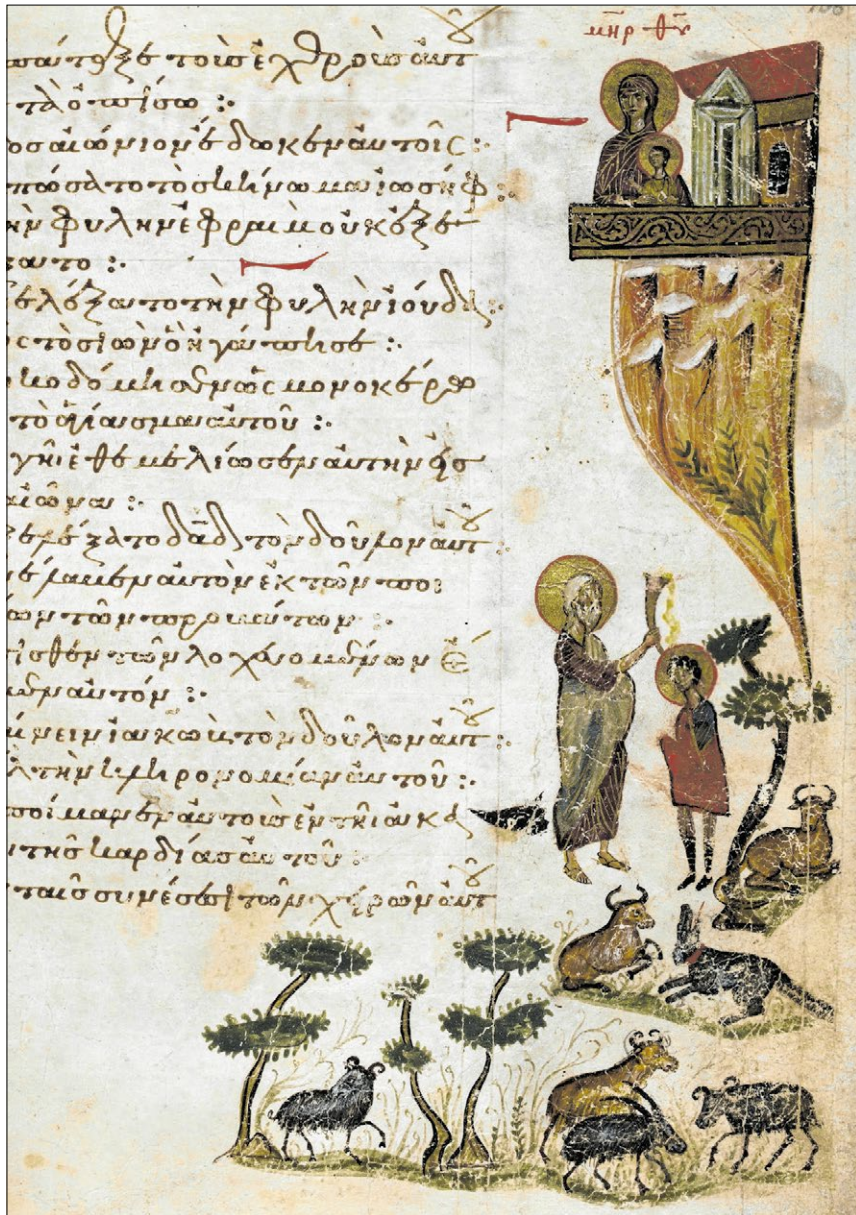 ΜΗΡ ΘΥ
πάταξε τοὺς ἐχθροὺς αὐτοῦ
ς τὰ ὀπίσω :·
ος αἰώνιον ἔδωκεν αὐτοῖς :·
πώσατο τὸ σκήνωμα ἰωσήφ :·
ὴν φυλὴν ἐφραὶμ οὐκ ἐξε
ξατο :·
ἐλέξατο τὴν φυλὴν ἰούδα :·
ς τὸ σιὼν ὃ ἠγάπησε :·
κοδόμησεν ὡς μονοκέρω
τὸ ἁγίασμα αὐτοῦ :·
γῆ ἐθεμελίωσεν αὐτὴν εἰς
αἰῶνα :·
ξελέξατο δαδ τὸν δοῦλον αὐτοῦ :·
έλαβεν αὐτὸν ἐκ τῶν ποι
ων τῶν προβάτων :·
ισθεν τῶν λοχευομένων ἔ
εν αὐτόν :·
αίνειν ἰακὼβ τὸν δοῦλον αὐτοῦ :·
λ τὴν κληρονομίαν αὐτοῦ :·
ποίμανεν αὐτοὺς ἐν τῆ ἀκα
τῆς καρδίας αὐτοῦ :·
ταῖς συνέσεσι τῶν χειρῶν αὐτοῦ